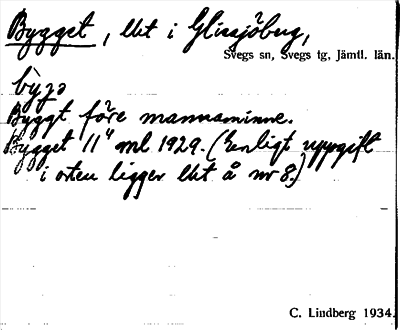 Bygget, lht i Glissjöberg,
Svegs sn, Svegs tg, Jämtl. län.
bỳgə
Byggt före mannaminne.
Bygget 11⁴ ml 1929. (Enligt uppgift
i orten ligger lht å nr 8.)
C. Lindberg 1934.